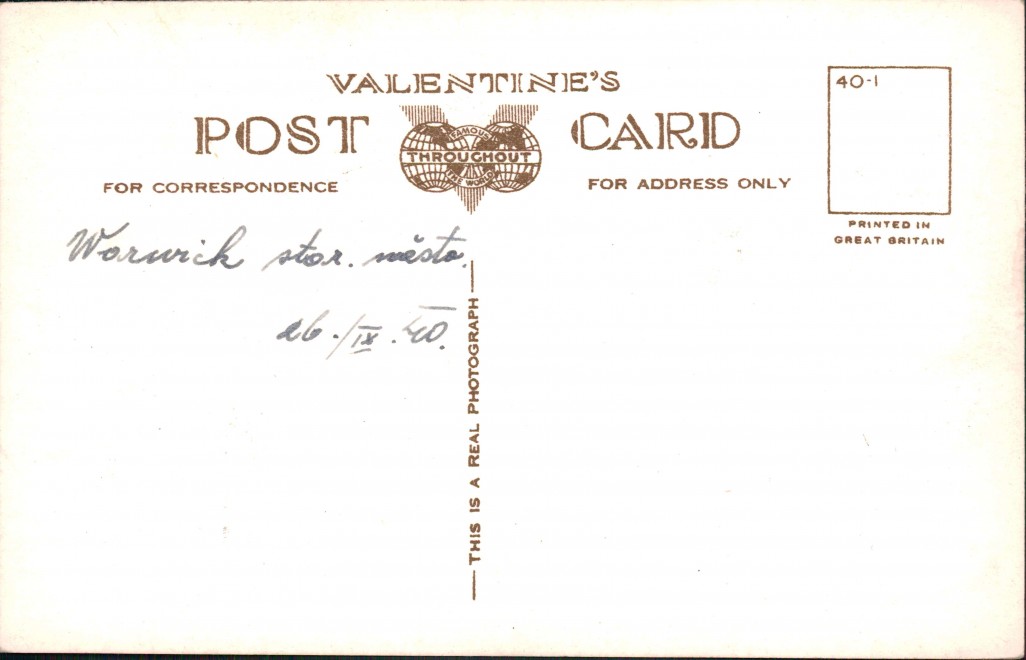 VALENTINE'S
POST CARD
FAMOUS
THROUGHOUT
THE WORLD
FOR CORRESPONDENCE
FOR ADDRESS ONLY
40-1
PRINTED IN
GREAT BRITAIN
Warwick star. město.
26./IX.40.
THIS IS A REAL PHOTOGRAPH